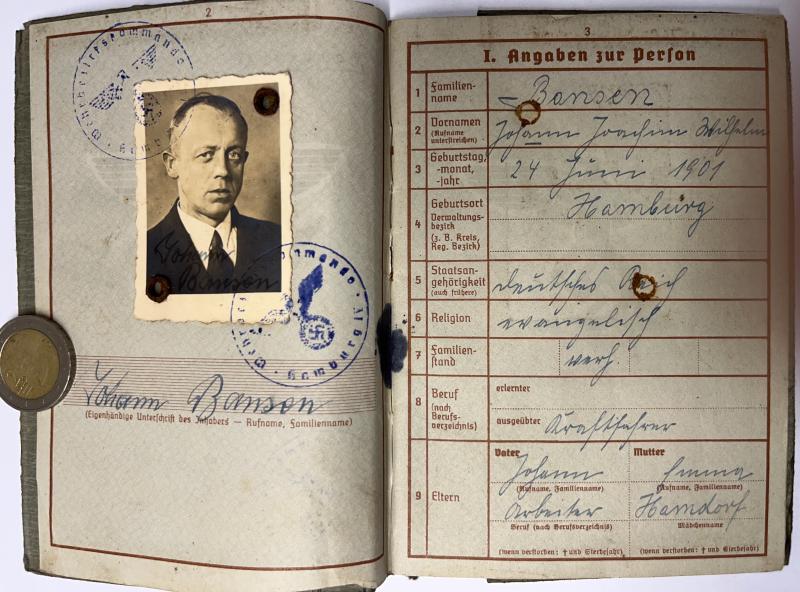 2
Wehrbezirkskommando
Hamburg
Johann
Bansen
Wehrbezirkskommando · Hamburg
Johann Bansen
(Eigenhändige Unterschrift des Inhabers — Rufname, Familienname)
3
I. Angaben zur Person
1 Familien-
name
Bansen
2 Vornamen
(Rufname
unterstreichen)
Johann Joachim Wilhelm
3 Geburtstag,
-monat,
-jahr
24 Juni 1901
4 Geburtsort
Verwaltungs-
bezirk
(z. B. Kreis,
Reg. Bezirk)
Hamburg
5 Staatsan-
gehörigkeit
(auch frühere)
deutsches Reich
6 Religion
evangelisch
7 Familien-
stand
verh.
8 Beruf
(nach
Berufs-
verzeichnis)
erlernter
ausgeübter
Kraftfahrer
9 Eltern
Vater Mutter
Johann Emma
(Rufname, Familienname) (Rufname, Familienname)
Arbeiter Hamdorf
Beruf (nach Berufsverzeichnis) Mädchenname
(wenn verstorben: † und Sterbejahr) (wenn verstorben: † und Sterbejahr)